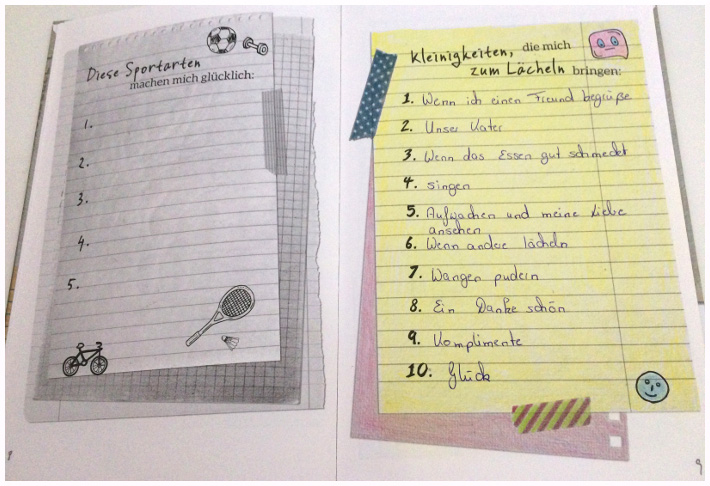 Diese Sportarten
machen mich glücklich:
1.
2.
3.
4.
5.
Kleinigkeiten, die mich
zum Lächeln bringen:
1. Wenn ich einen Freund begrüße
2. Unser Kater
3. Wenn das Essen gut schmeckt
4. singen
5. Aufwachen und meine Liebe
ansehen
6. Wenn andere lächeln
7. Wangen pudern
8. Ein Danke schön
9. Komplimente
10. Glück
9